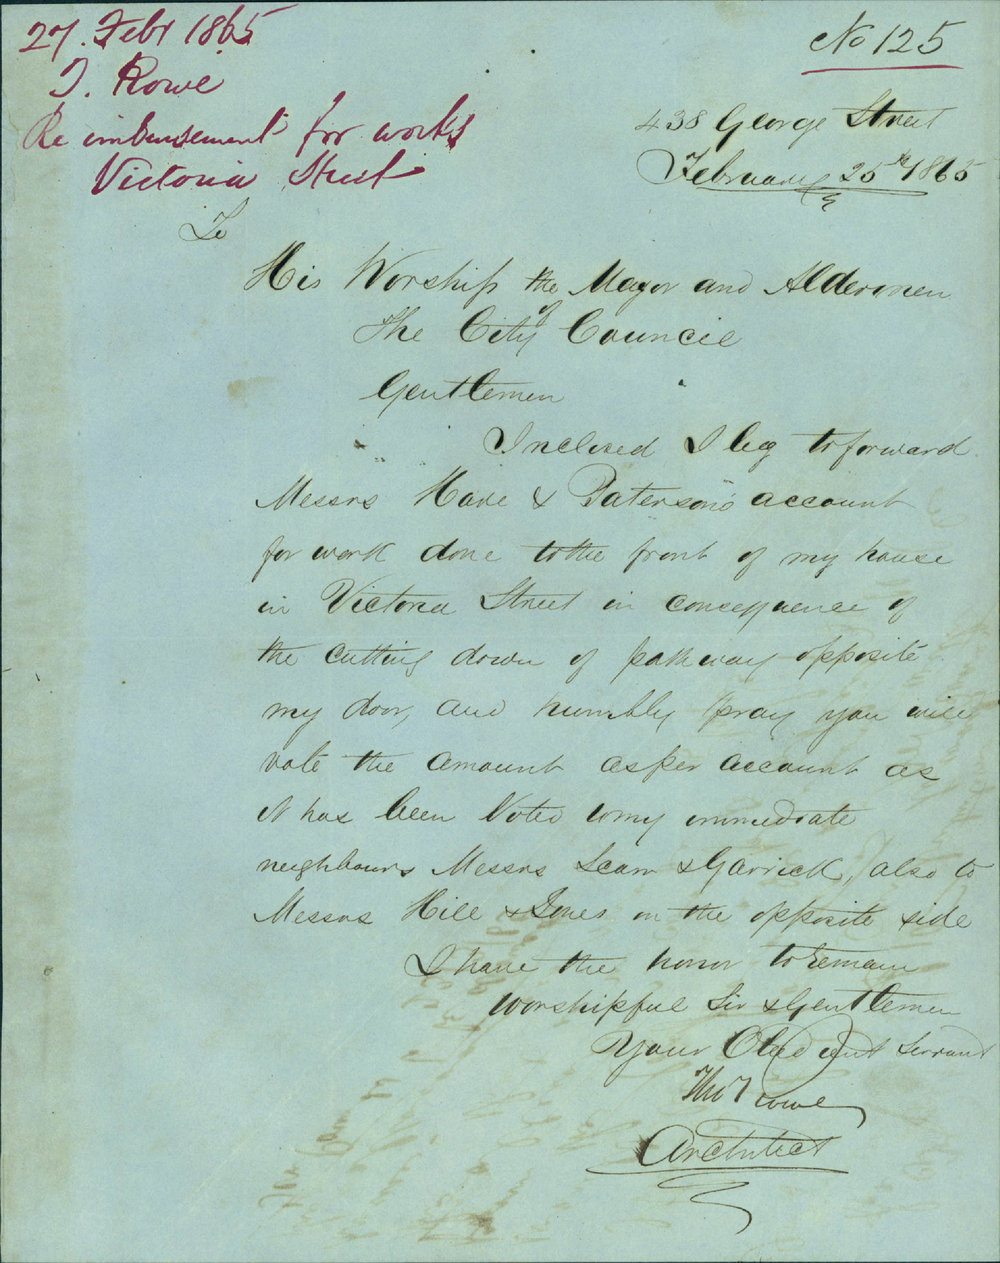 27. Feby 1865
T. Rowe
Re imbursement for works
Victoria Street
No 125
438 George Street
February 25th 1865
To
His Worship the Mayor and Aldermen
of
The City Council
Gentlemen
Inclosed I beg to forward
Messrs Kane & Paterson's account
for work done to the front of my house
in Victoria Street in consequence of
the cutting down of pathway opposite
my door, and humbly pray you will
vote the amount as per account as
it has been Voted to my immediate
neighbours Messrs & Garrick, also to
Messrs Hill & Jones on the opposite side
I have the honor to remain
Worshipful Sir & Gentlemen
Your Obedient Servant
Thos Rowe
Architect